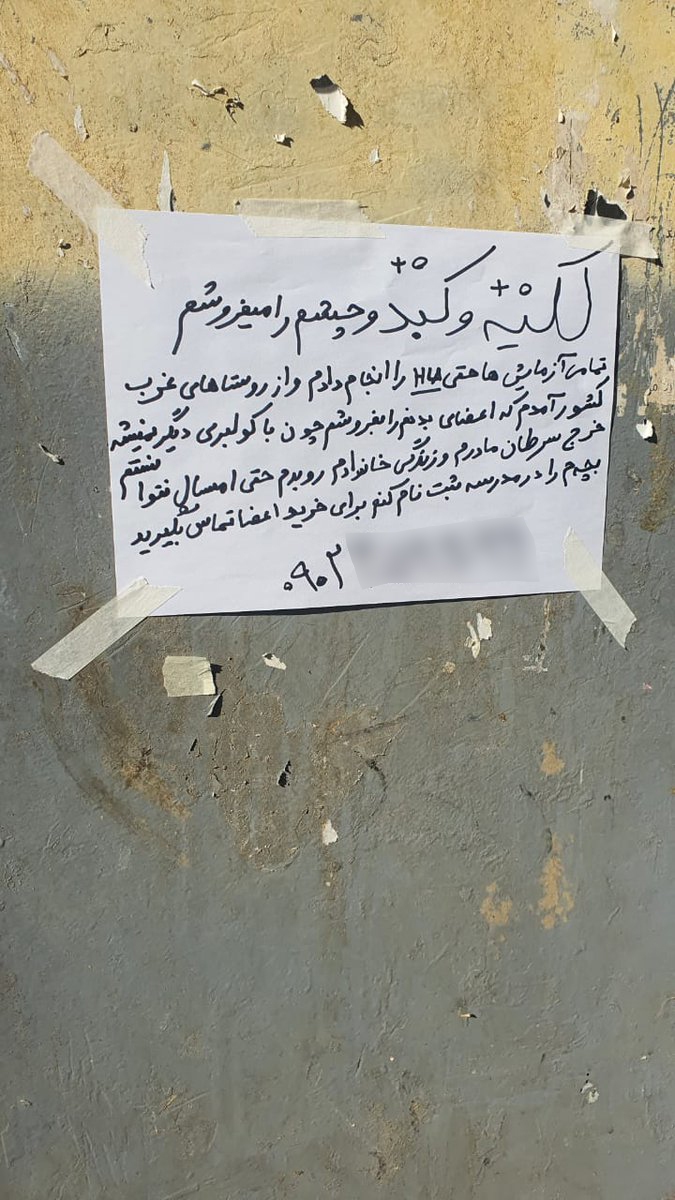 کلیه +O و کبد +O و چشم را میفروشم
تمامی آزمایش ها حتی HLA را انجام دادم و از روستاهای غرب
کشور آمدم که اعضای بدنم را بفروشم چون با کولبری دیگر نمیشه
خرج سرطان مادرم و زندگی خانوادم رو بدم حتی امسال نتوانستم
بچه‌م را در مدرسه ثبت نام کنم برای خرید اعضا تماس بگیرید
۰۹۰۳